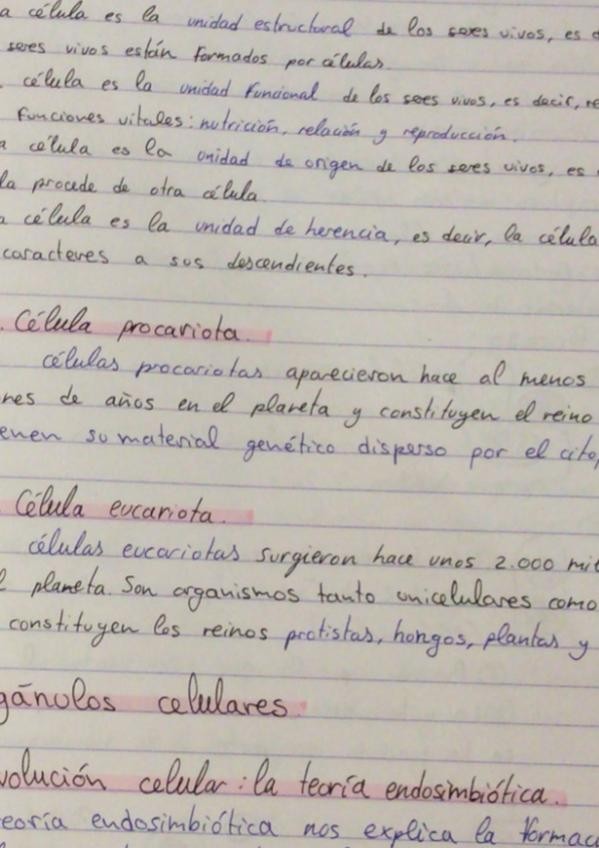 a célula es la unidad estructural de los seres vivos, es d
seres vivos están formados por células.
célula es la unidad funcional de los seres vivos, es decir, re
funciones vitales: nutrición, relación y reproducción.
a célula es la unidad de origen de los seres vivos, es
la procede de otra célula.
a célula es la unidad de herencia, es decir, la célula
caracteres a sus descendientes.
. Célula procariota.
células procariotas aparecieron hace al menos
nes de años en el planeta y constituyen el reino
enen su material genético disperso por el cito
Célula eucariota.
células eucariotas surgieron hace unos 2.000 mil
l planeta. Son organismos tanto unicelulares como
constituyen los reinos protistas, hongos, plantas y
gánulos celulares.
volución celular: la teoría endosimbiótica.
eoría endosimbiótica nos explica la formac